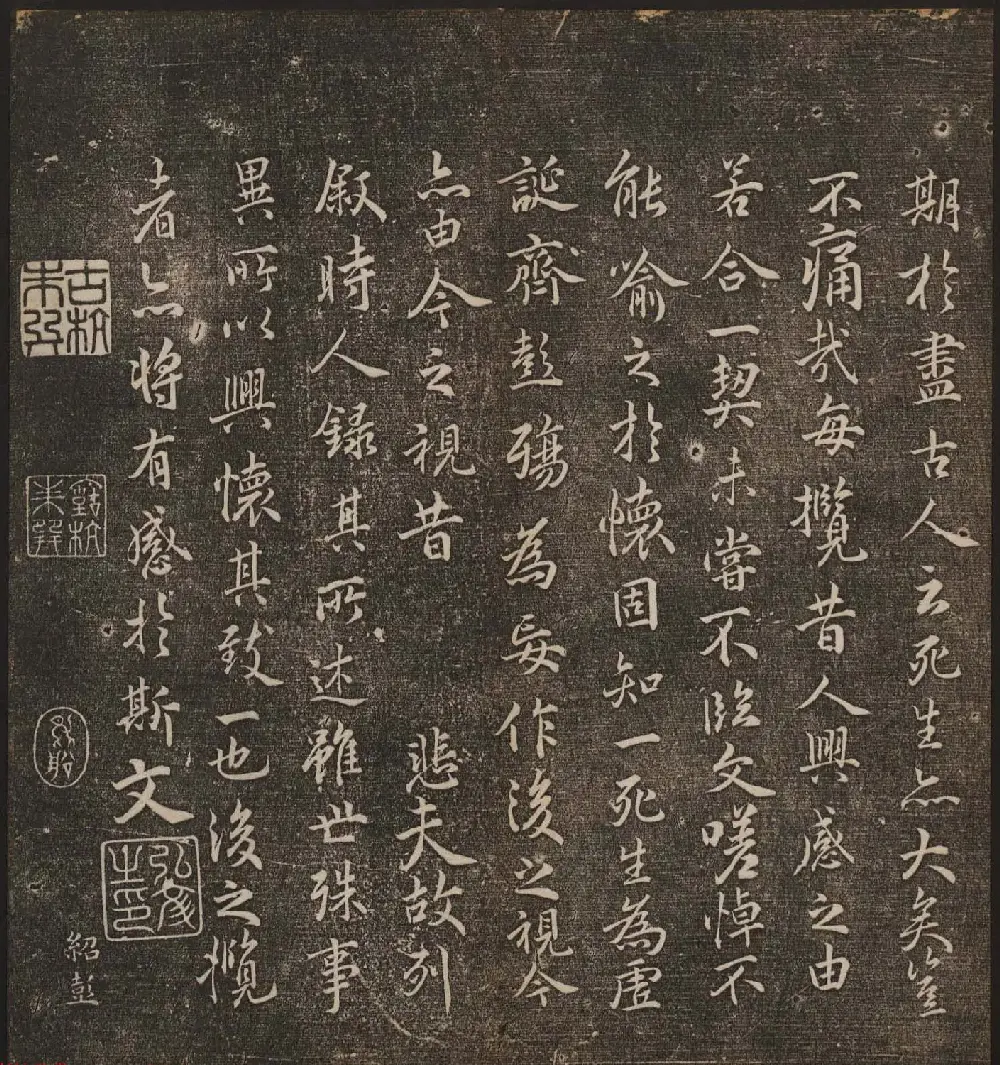 期於盡古人云死生亦大矣豈
不痛哉每攬昔人興感之由
若合一契未嘗不臨文嗟悼不
能喻之於懷固知一死生為虛
誕齊彭殤為妄作後之視今
亦由今之視昔 悲夫故列
敘時人錄其所述雖世殊事
異所以興懷其致一也後之攬
者亦將有感於斯文
紹彭